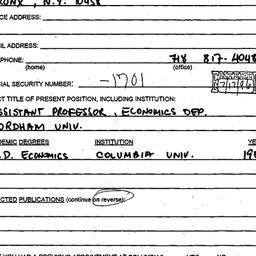 RONX, N.Y. 10458
CE ADDRESS:
IL ADDRESS:
PHONE: 718 817-4048
(home) (office)
IAL SECURITY NUMBER: -1701
CT TITLE OF PRESENT POSITION, INCLUDING INSTITUTION:
SSISTANT PROFESSOR, ECONOMICS DEP.
ORDHAM UNIV.
DEMIC DEGREES INSTITUTION YE
.D. ECONOMICS COLUMBIA UNIV. 19
CTED PUBLICATIONS (continue on reverse):